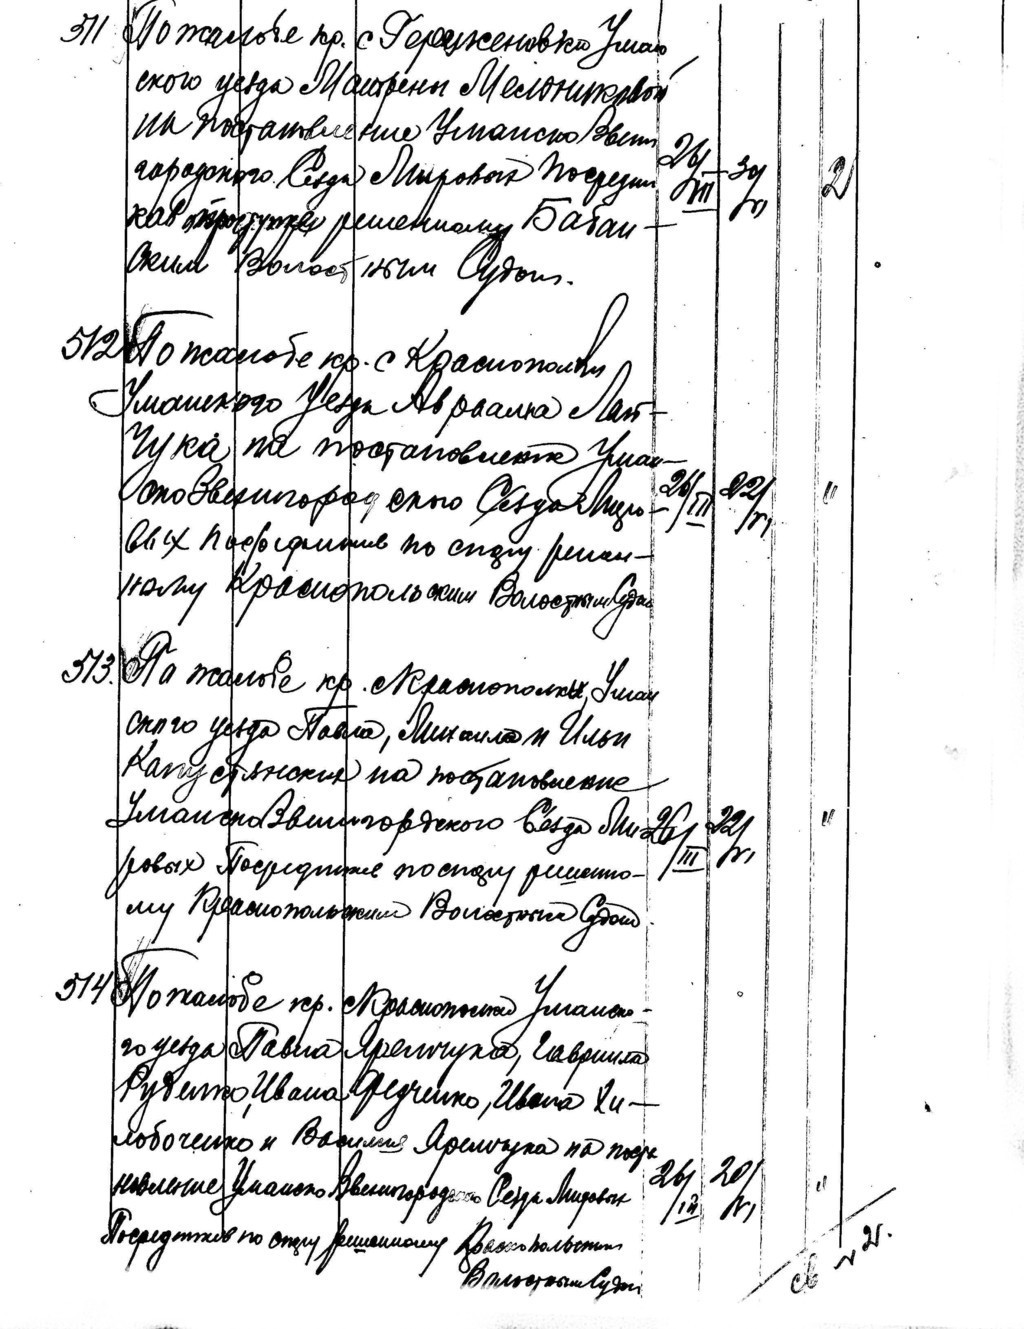 511 По жалобе кр. с Гереженовка Уман
ского уезда Матрены Мельниковой
на постановление Уманско Звени
городского Сезда Мировых Посредни
ков решенному Бабан—
ским Волостным Судом.
26/III — 30/VI 2
512 По жалобе кр. с Краснополки
Уманского Уезда Авраама Лат—
чука на постановление Уман—
ско Звенигородского Сезда Миро—
вых Посредников по спору решен—
ному Краснопольским Волостным Судом
26/III 22/VI "
513. По жалобе кр. с Краснополки, Уман
ского уезда Павла, Михаила и Ильи
Капустянских на постановление
Уманско Звенигородского Сезда Ми
ровых Посредников по спору решенно—
му Краснопольским Волостным Судом.
26/III 22/VI "
514 По жалобе кр. с Краснополки Уманско—
го уезда Павла Яремчука, Гавриила
Руденко, Ивана Федченко, Ивана Хи—
лобоченко и Василия Яремчука на поста
новление Уманско Звенигородского Сезда Мировых
Посредников по спору решенному Краснопольским
Волостным Судом
26/III 20/VI "
2.